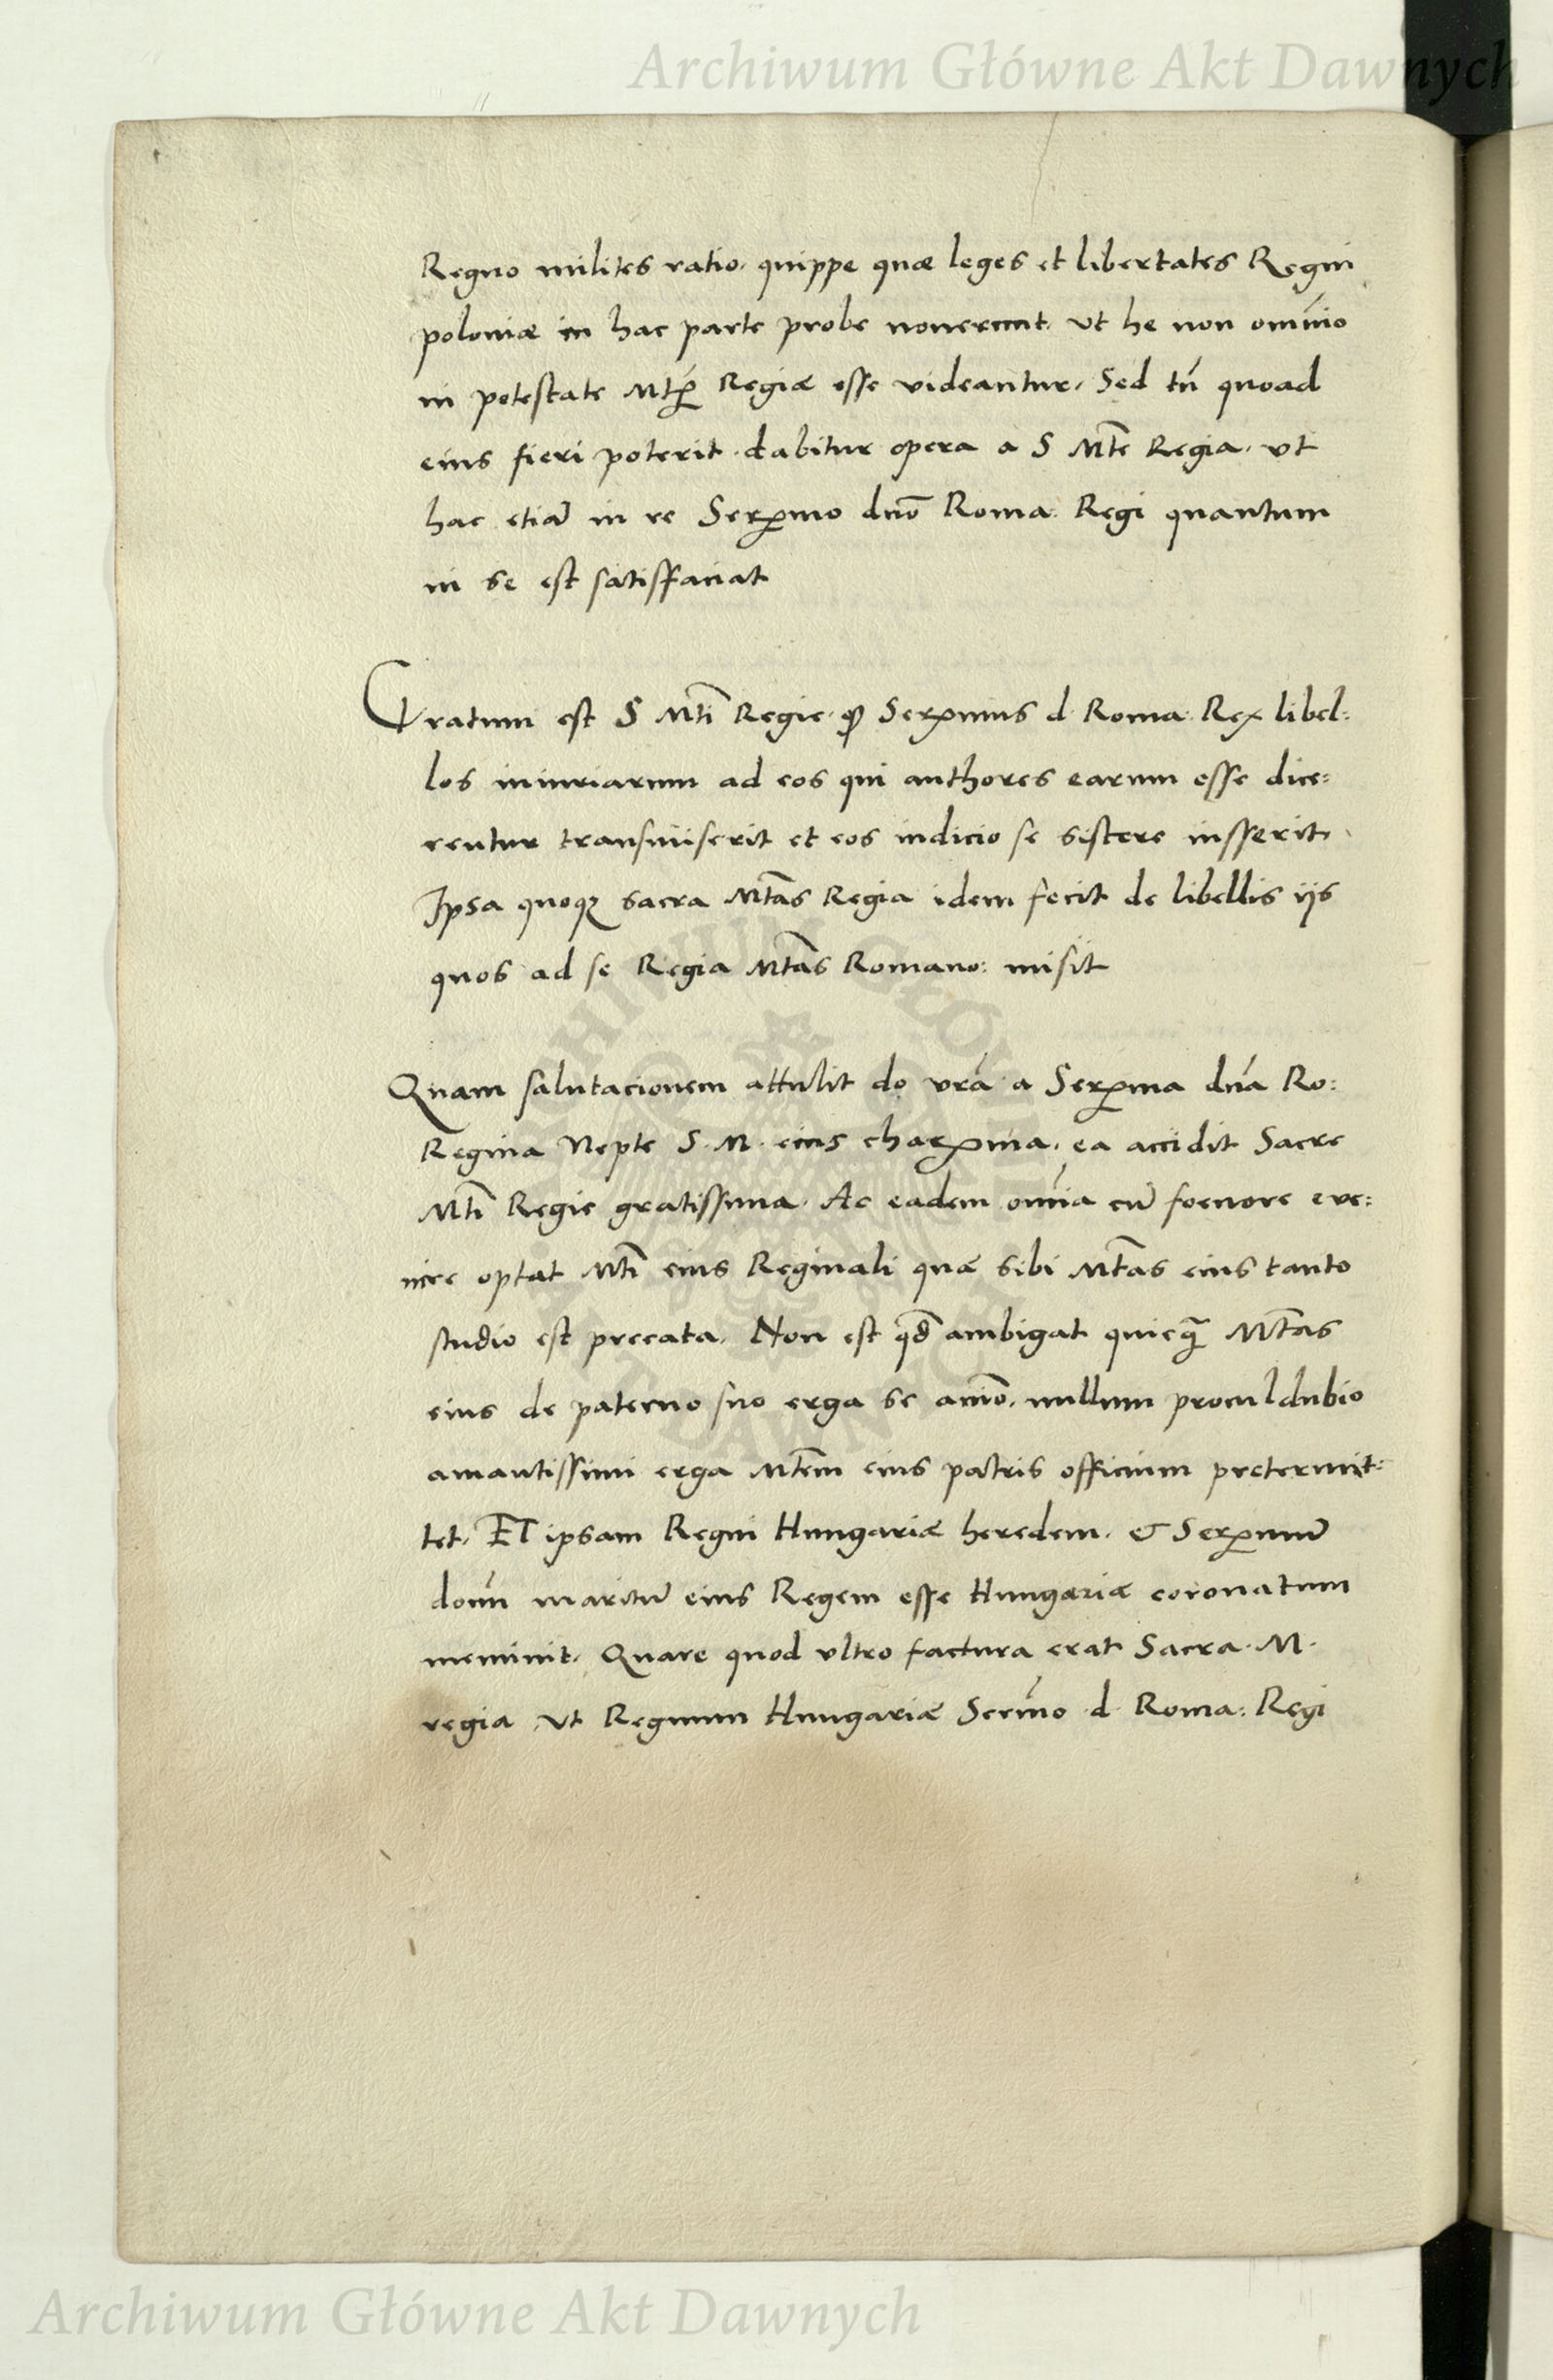 Archiwum Główne Akt Dawnych
Regno milites ratio. quippe quæ leges et libertates Regni
poloniæ in hac parte probe nouerunt. vt he non omnĩo
in potestate Mtis Regiæ esse videantur. Sed tñ quoad
eius fieri poterit. dabitur opera a S Mte Regia. vt
hac etiã in re Serᵐᵒ dño Roma: Regi quantum
in se est satisfaciat
Gratum est S Mti Regie. ꝙ Serᵐᵘˢ d. Roma: Rex libel:
los iniuriarum ad eos qui authores earum esse dice:
rentur transmiserit et eos iudicio se sistere iusserit.
Ipsa quoqꝫ sacra Mtas Regia idem fecit de libellis ijs
quos ad se Regia Mtas Romano: misit
Quam salutacionem attulit do vrã a Serᵐᵃ dña Ro:
Regina Nepte S. M. eius charᵐᵃ. ea accidit Sacre
Mti Regie gratissima. Ac eadem omĩa cũ foenore eve:
nire optat Mti eius Reginali quæ sibi Mtas eius tanto
studio est precata. Non est qđ ambigat quicqꝫ Mtas
eius de paterno suo erga se aĩmo. nullum proculdubio
amantissimi erga Mtem eius patris officium pretermit:
tet. ET ipsam Regni Hungariæ heredem. & Serᵐᵘ̃
dom̃ maritũ eius Regem esse Hungariæ coronatum
meminit. Quare quod vltro factura erat Sacra. M.
regia vt Regnum Hungariæ Serm̃o d. Roma: Regi
Archiwum Główne Akt Dawnych